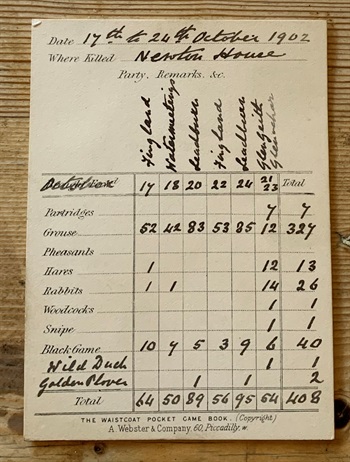 Date 17th to 24th October 1902
Where Killed Newton House
Party, Remarks, &c.
Fingland Watermeetings Fingland
17 18 20 22 24 21/23 Total
Partridges 7 7
Grouse 52 42 83 53 85 12 327
Pheasants
Hares 1 12 13
Rabbits 1 1 14 26
Woodcocks 1 1
Snipe 1 1
Black Game 10 7 5 3 9 6 40
Wild Duck 1 1
Golden Plover 1 1 2
64 50 89 56 95 54 408
THE WAISTCOAT POCKET GAME BOOK. (Copyright)
A. Webster & Company, 60, Piccadilly, W.